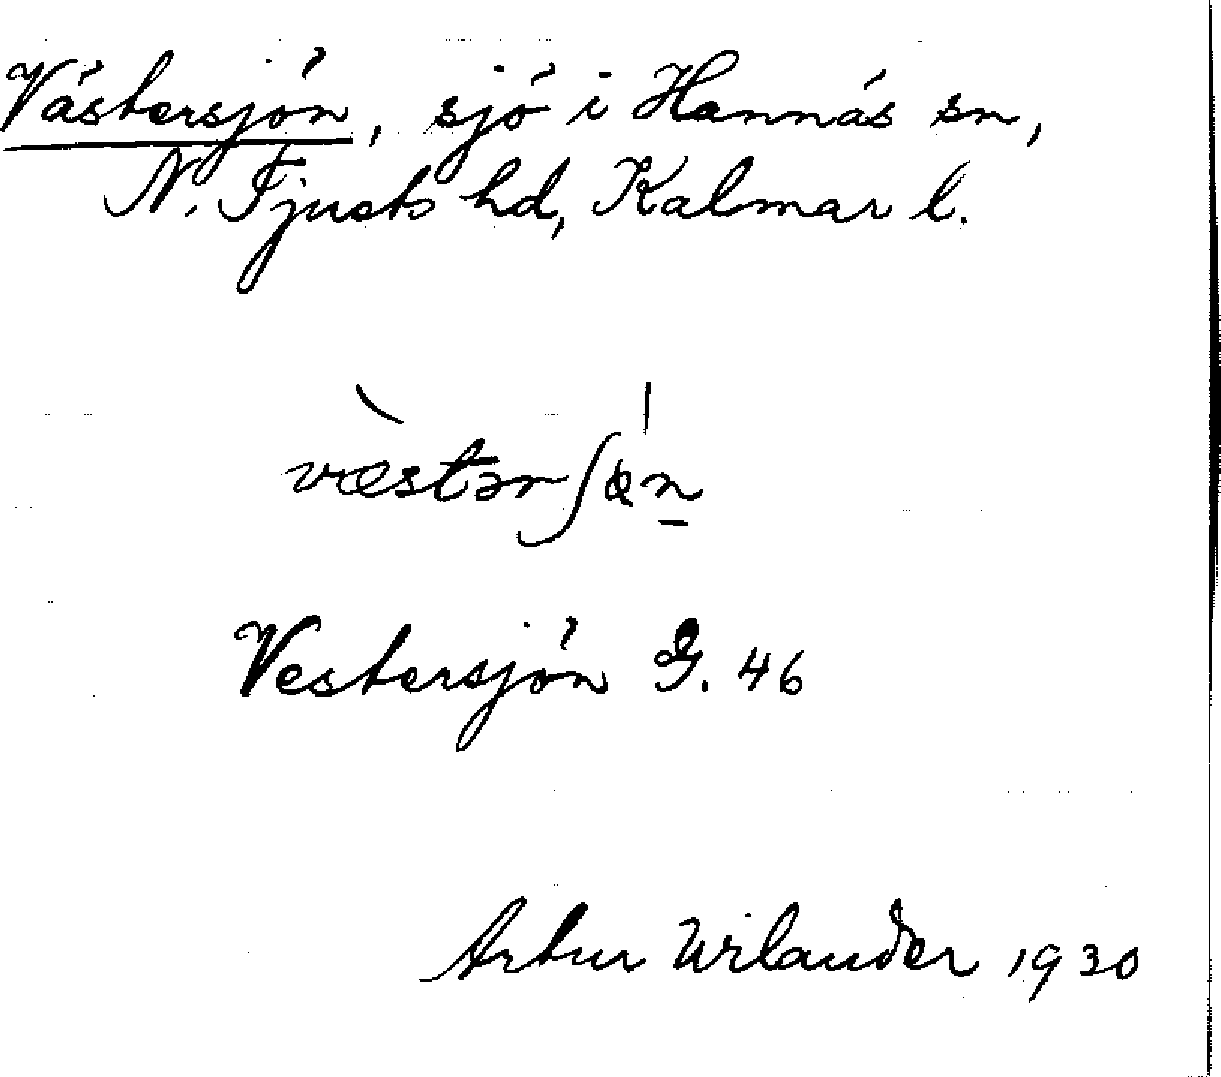 Västersjön, sjö i Hannäs sn,
N. Tjusts hd, Kalmar l.
væstər ʃɵn
Vestersjön G. 46
Artur Wilander 1930